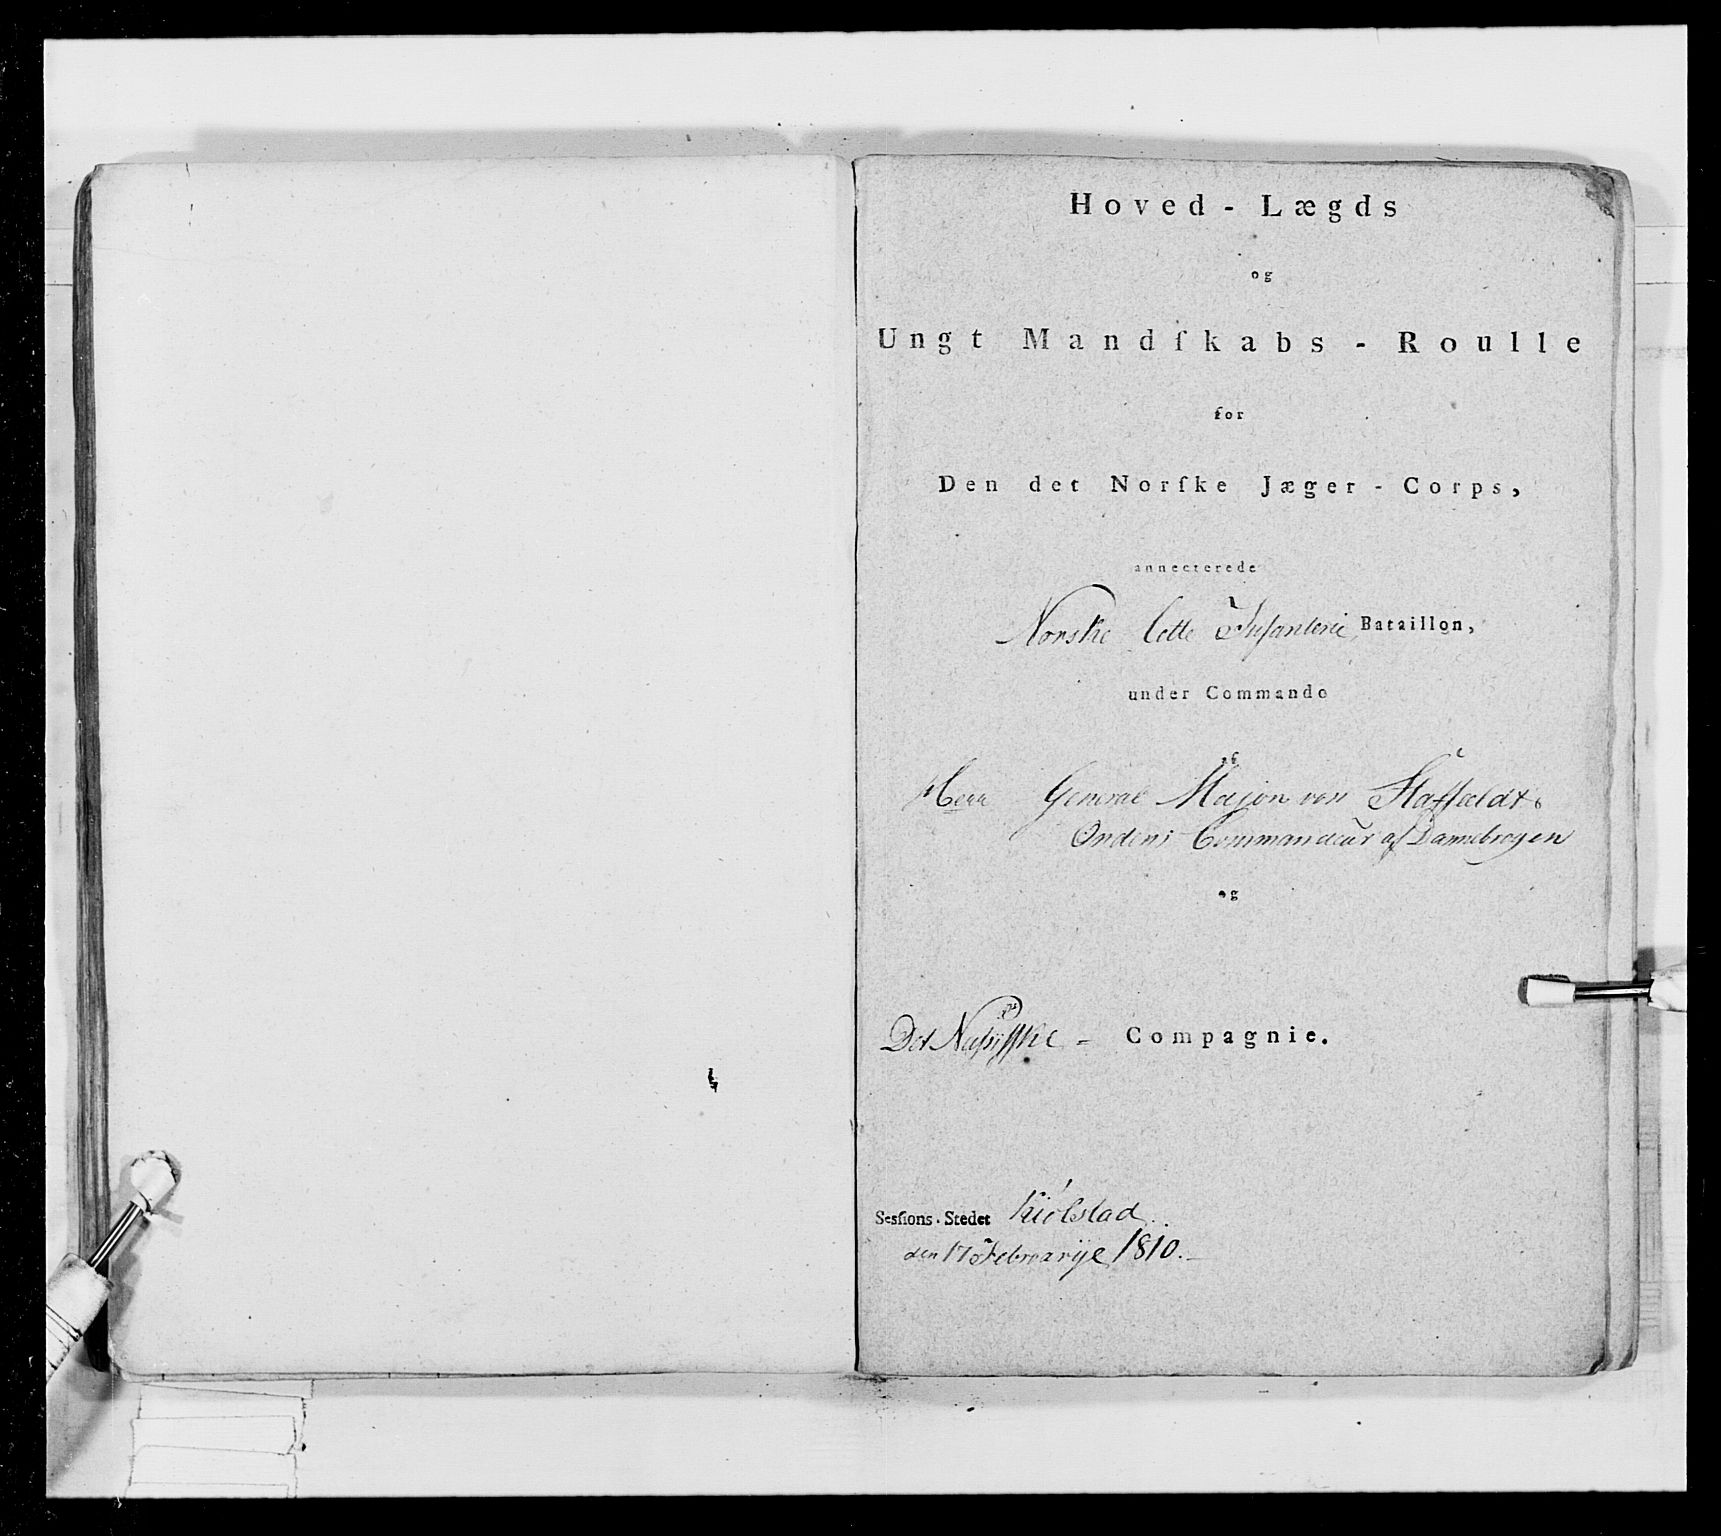 Hoved - Lægds
og
Ungt Mandſkabs - Roulle
for
Den det Norſke Jæger - Corps,
annecterede
Norske lette Infanterie Bataillon,
under Commando
af
Herr General Major von Staffeldt
Ordens Commandeur af Dannebrogen
og
Det Compagnie.
Sesſions-Stedet Kiølstad
den 17 Februarÿe 1810.